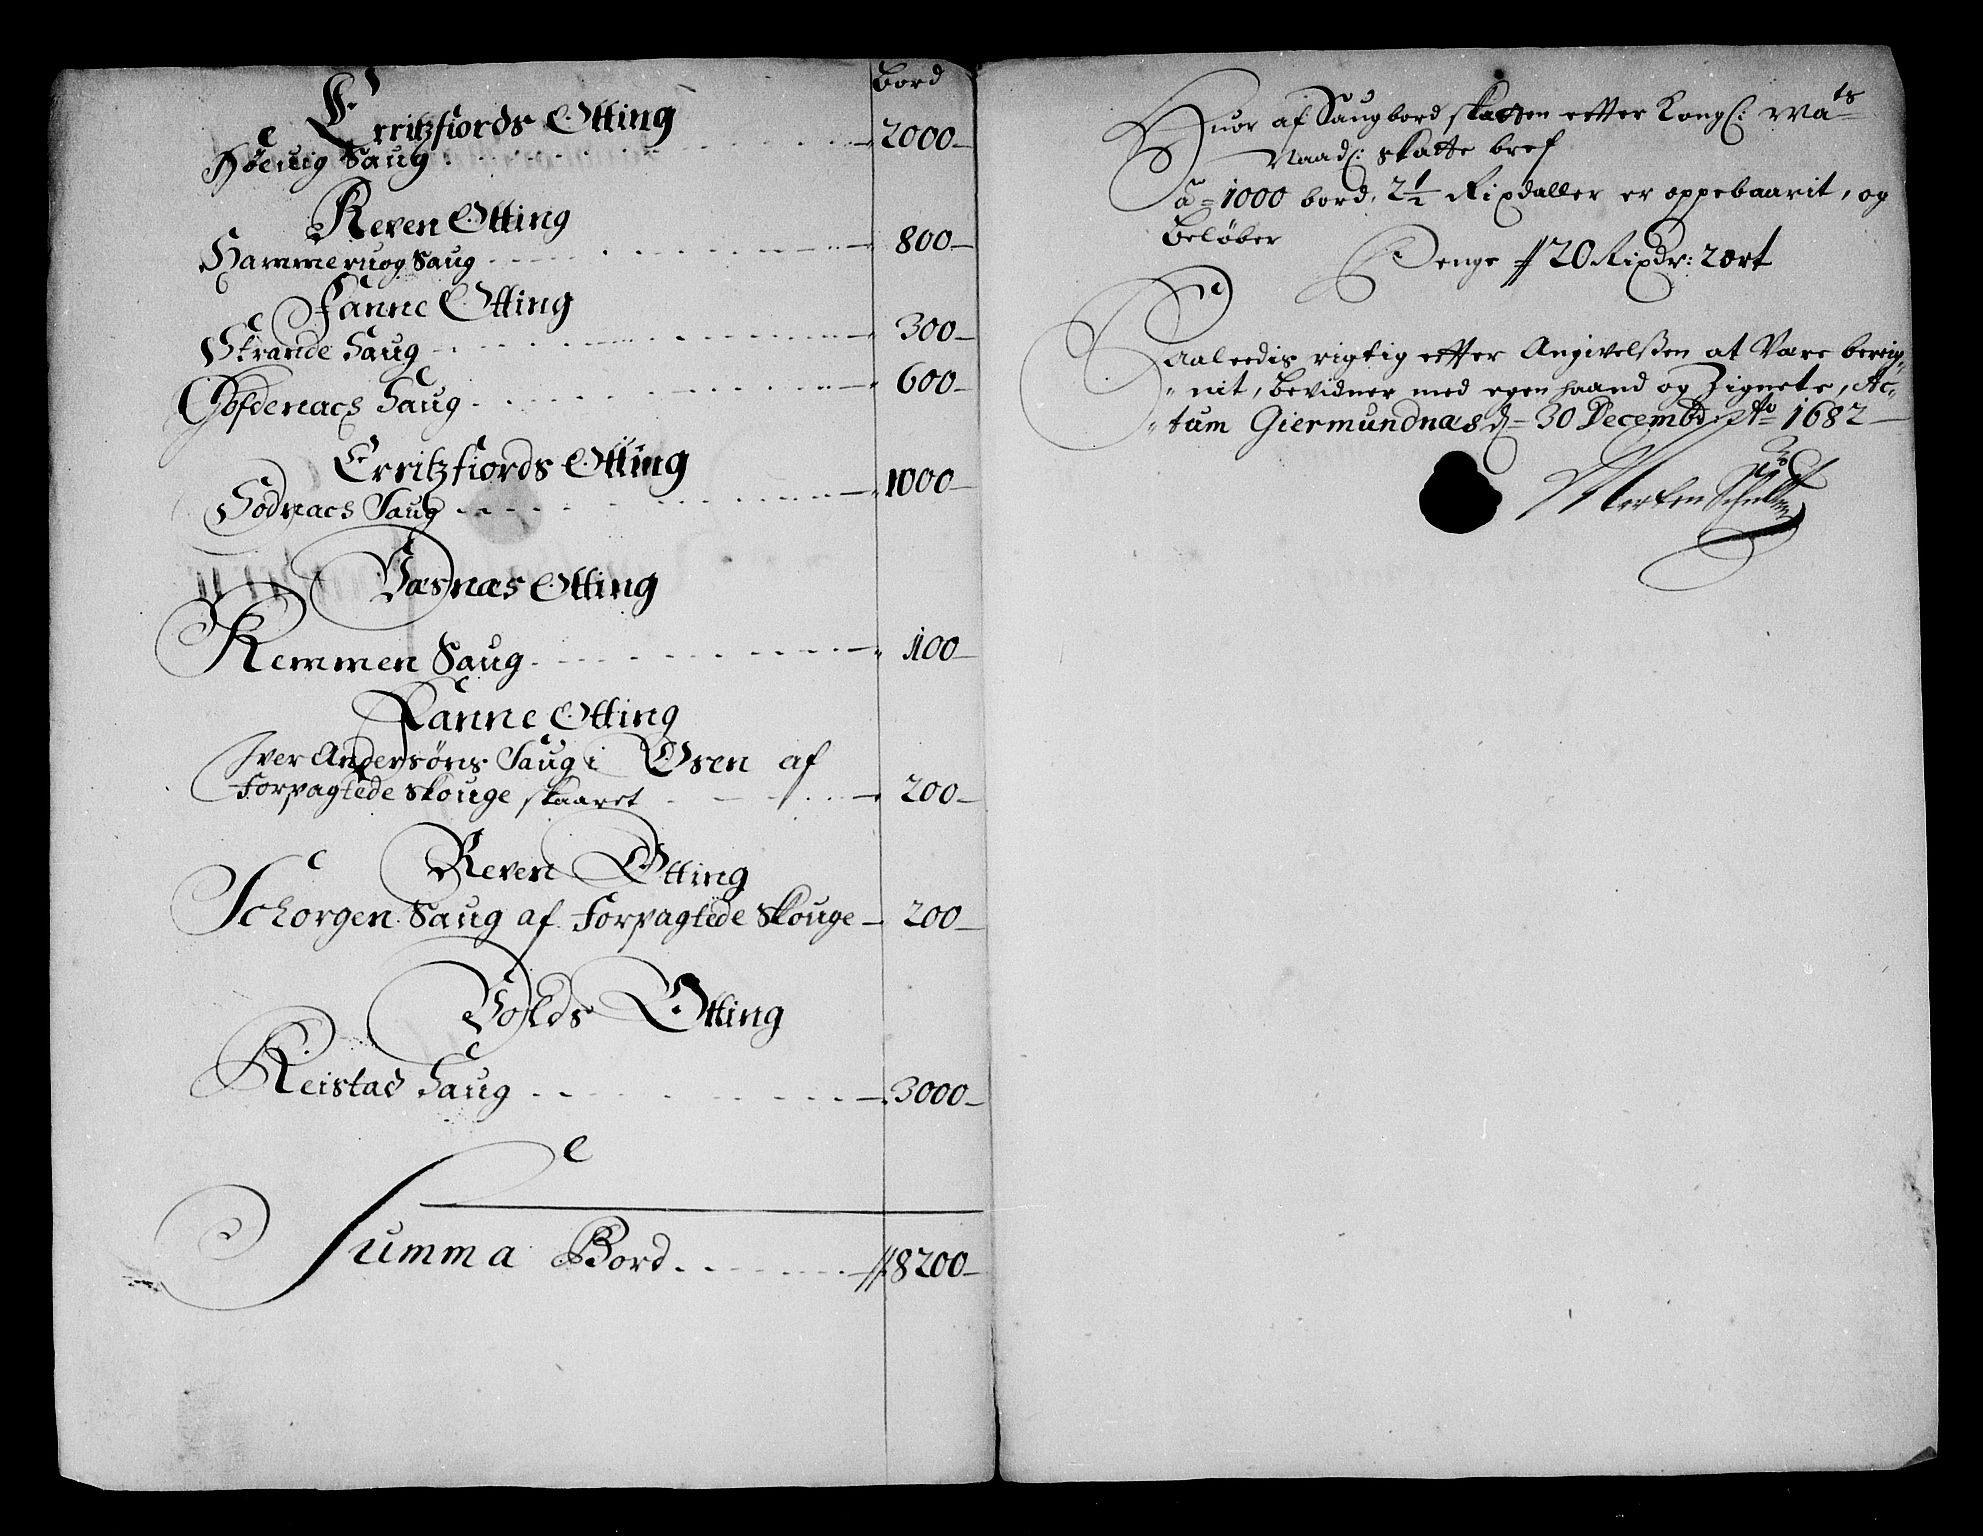 Bord
Erritzfiords Otting
Høeuig Saug 2000
Reven Otting
Hammeruog Saug 800
Fanne Otting
Strande Saug 300
Gofdenacs Saug 600
Erritzfiords Otting
Hodnacs Saug 1000
Væsnæs Otting
Remmen Saug 100
Fanne Otting
Iver Andersøns Saug i Osen af
Forpagtede skouge skaaret 200
Reven Otting
Schorgen Saug af Forpagtede Skouge 200
Volds Otting
Reistad Saug 3000
Summa Bord 8200
Huor af Saugbord skatten efter Kongl: Ma^ts
Naad: skatte bref
a 1000 bord, 2½ Rixdaller er oppebaarit, og
beløber
Penge 20 Rixdr: 2 ort
Saaleedis rigtig efter Angivelssen at Være bereig-
nit, bevidner med egen haand og Zignete, Ac-
tum Giermundnæs d 30 Decembr: Ao 1682
Morten Schultz